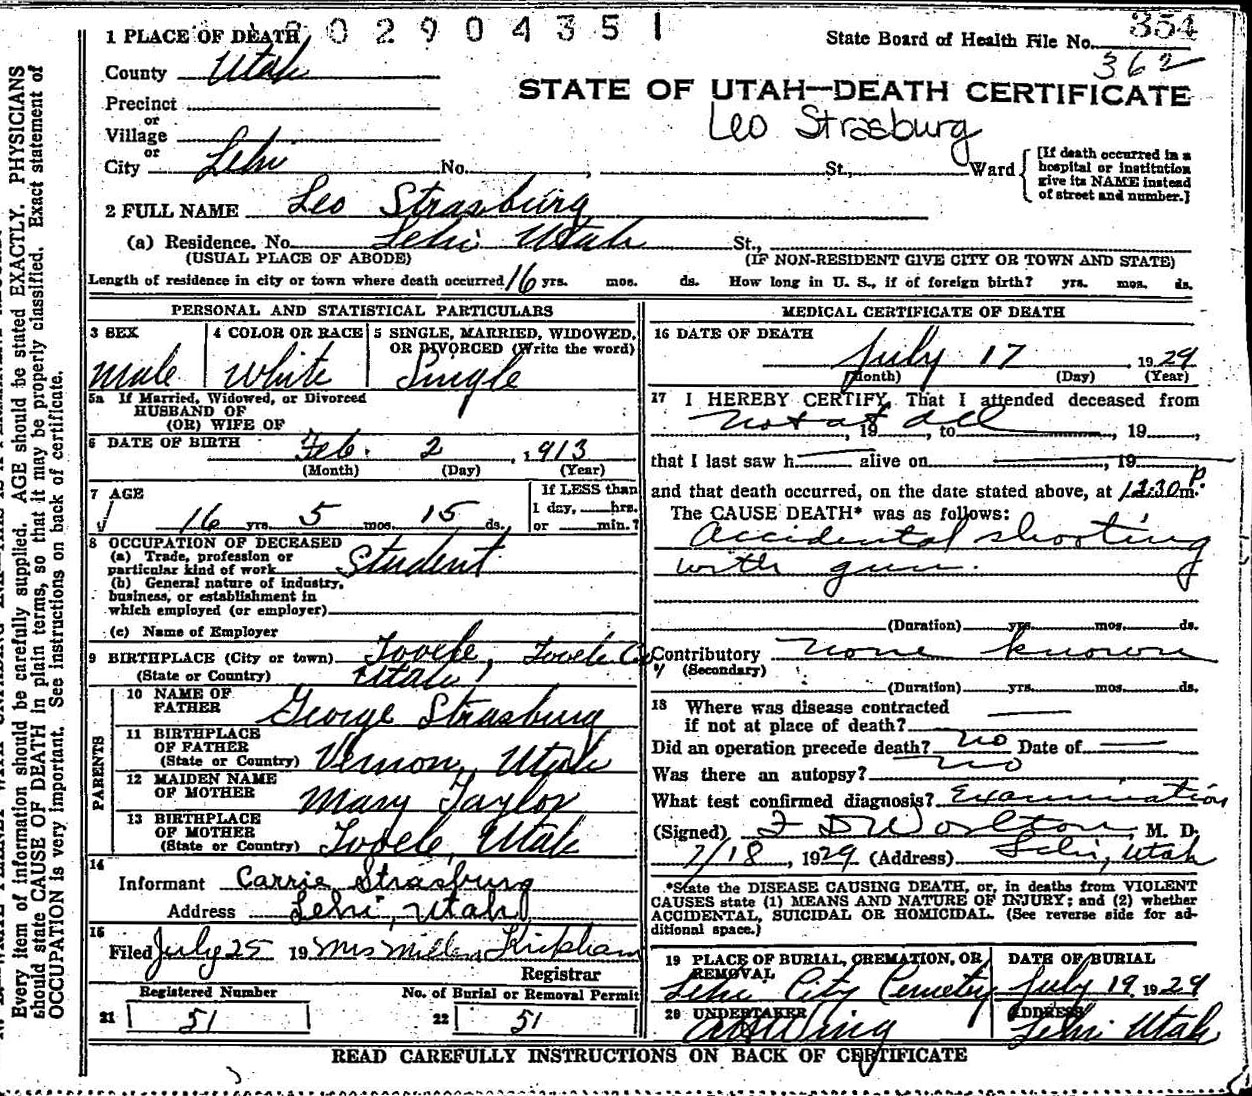 3 0 2 9 0 4 3 5 1
State Board of Health File No. 354
362
STATE OF UTAH—DEATH CERTIFICATE
Leo Strasburg
1 PLACE OF DEATH
County Utah
Precinct
or
Village
or
City Lehi No. , St., Ward
[If death occurred in a
hospital or institution
give its NAME instead
of street and number.]
2 FULL NAME Leo Strasburg
(a) Residence. No. Lehi Utah St.,
(USUAL PLACE OF ABODE) (IF NON-RESIDENT GIVE CITY OR TOWN AND STATE)
Length of residence in city or town where death occurred 16 yrs. mos. ds. How long in U. S., if of foreign birth? yrs. mos. ds.
PERSONAL AND STATISTICAL PARTICULARS
3 SEX
male
4 COLOR OR RACE
White
5 SINGLE, MARRIED, WIDOWED,
OR DIVORCED (Write the word)
Single
5a If Married, Widowed, or Divorced
HUSBAND OF
(OR) WIFE OF
6 DATE OF BIRTH Feb. 2, 1913
(Month) (Day) (Year)
7 AGE
16 yrs. 5 mos. 15 ds.
If LESS than
1 day, hrs.
or min.?
8 OCCUPATION OF DECEASED
(a) Trade, profession or
particular kind of work Student
(b) General nature of industry,
business, or establishment in
which employed (or employer)
(c) Name of Employer
9 BIRTHPLACE (City or town) Tooele, Tooele Co
(State or Country) Utah
PARENTS
10 NAME OF
FATHER George Strasburg
11 BIRTHPLACE
OF FATHER
(State or Country) Vernon, Utah
12 MAIDEN NAME
OF MOTHER Mary Taylor
13 BIRTHPLACE
OF MOTHER
(State or Country) Tooele, Utah
14
Informant Carrie Strasburg
Address Lehi, Utah
15
Filed July 25 19 Mrs Kirkham
Registrar
Registered Number
21 51
No. of Burial or Removal Permit
22 51
MEDICAL CERTIFICATE OF DEATH
16 DATE OF DEATH
July 17 1929
(Month) (Day) (Year)
17 I HEREBY CERTIFY, That I attended deceased from
not at all, 19 , to , 19 ,
that I last saw h alive on , 19
and that death occurred, on the date stated above, at 12:30 P m.
The CAUSE DEATH* was as follows:
Accidental shooting
with gun.
(Duration) yrs. mos. ds.
Contributory none known
(Secondary)
(Duration) yrs. mos. ds.
18 Where was disease contracted
if not at place of death?
Did an operation precede death? no Date of
Was there an autopsy? no
What test confirmed diagnosis? Examination
(Signed) , M. D.
7/18, 1929 (Address) Lehi, Utah
*State the DISEASE CAUSING DEATH, or, in deaths from VIOLENT
CAUSES state (1) MEANS AND NATURE OF INJURY; and (2) whether
ACCIDENTAL, SUICIDAL OR HOMICIDAL. (See reverse side for ad-
ditional space.)
19 PLACE OF BURIAL, CREMATION, OR
REMOVAL
Lehi City Cemetery
DATE OF BURIAL
July 19 1929
20 UNDERTAKER
ADDRESS
Lehi Utah
READ CAREFULLY INSTRUCTIONS ON BACK OF CERTIFICATE
Every item of information should be carefully supplied. AGE should be stated EXACTLY. PHYSICIANS
should state CAUSE OF DEATH in plain terms, so that it may be properly classified. Exact statement of
OCCUPATION is very important. See instructions on back of certificate.